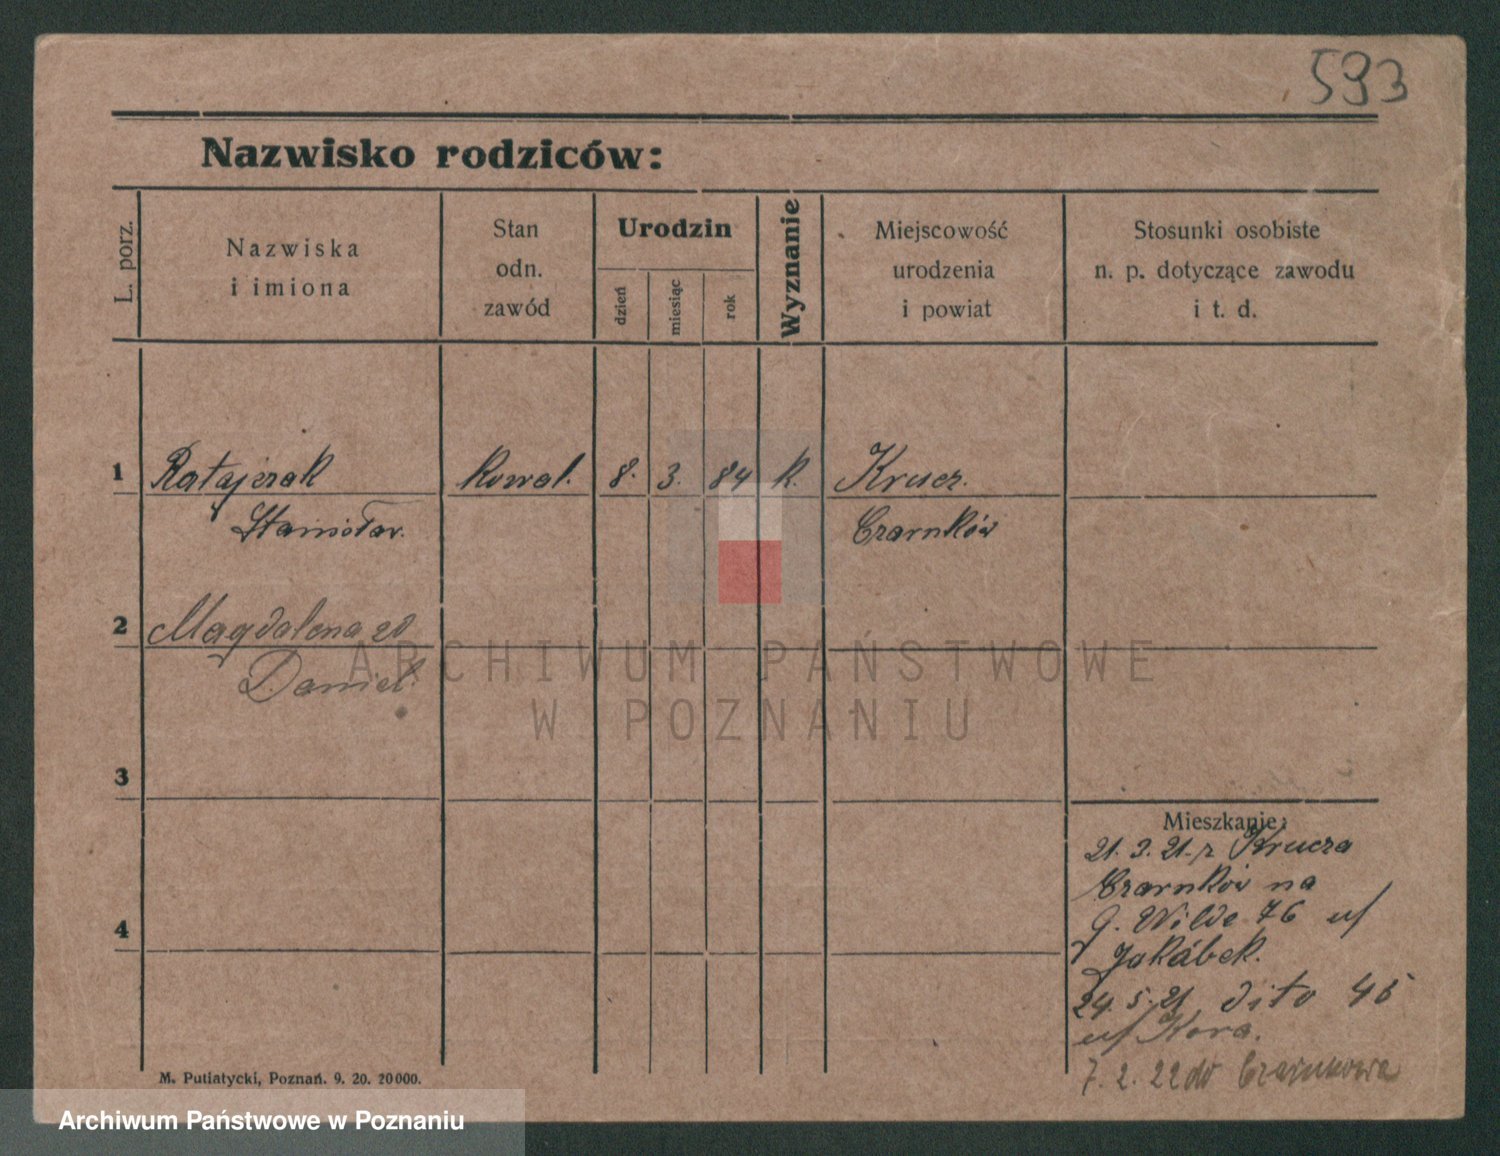 593
Nazwisko rodziców:
L. porz.
Nazwiska
i imiona
Stan
odn.
zawód
Urodzin
dzień
miesiąc
rok
Wyznanie
Miejscowość
urodzenia
i powiat
Stosunki osobiste
n. p. dotyczące zawodu
i t. d.
1 Ratajczak kowal. 8. 3. 84 k. Krucz.
Stanisław. Czarnków
2 Magdalena zd
Daniel.
3
4
Mieszkanie:
21. 3. 21. z Krucza
Czarnków na
G. Wilde 76 u/
Jakábek.
24. 5. 21 dito 45
u/ Kora.
7. 2. 22 do Czarnkowa
M. Putiatycki, Poznań. 9. 20. 20000.
ARCHIWUM PAŃSTWOWE
W POZNANIU
Archiwum Państwowe w Poznaniu